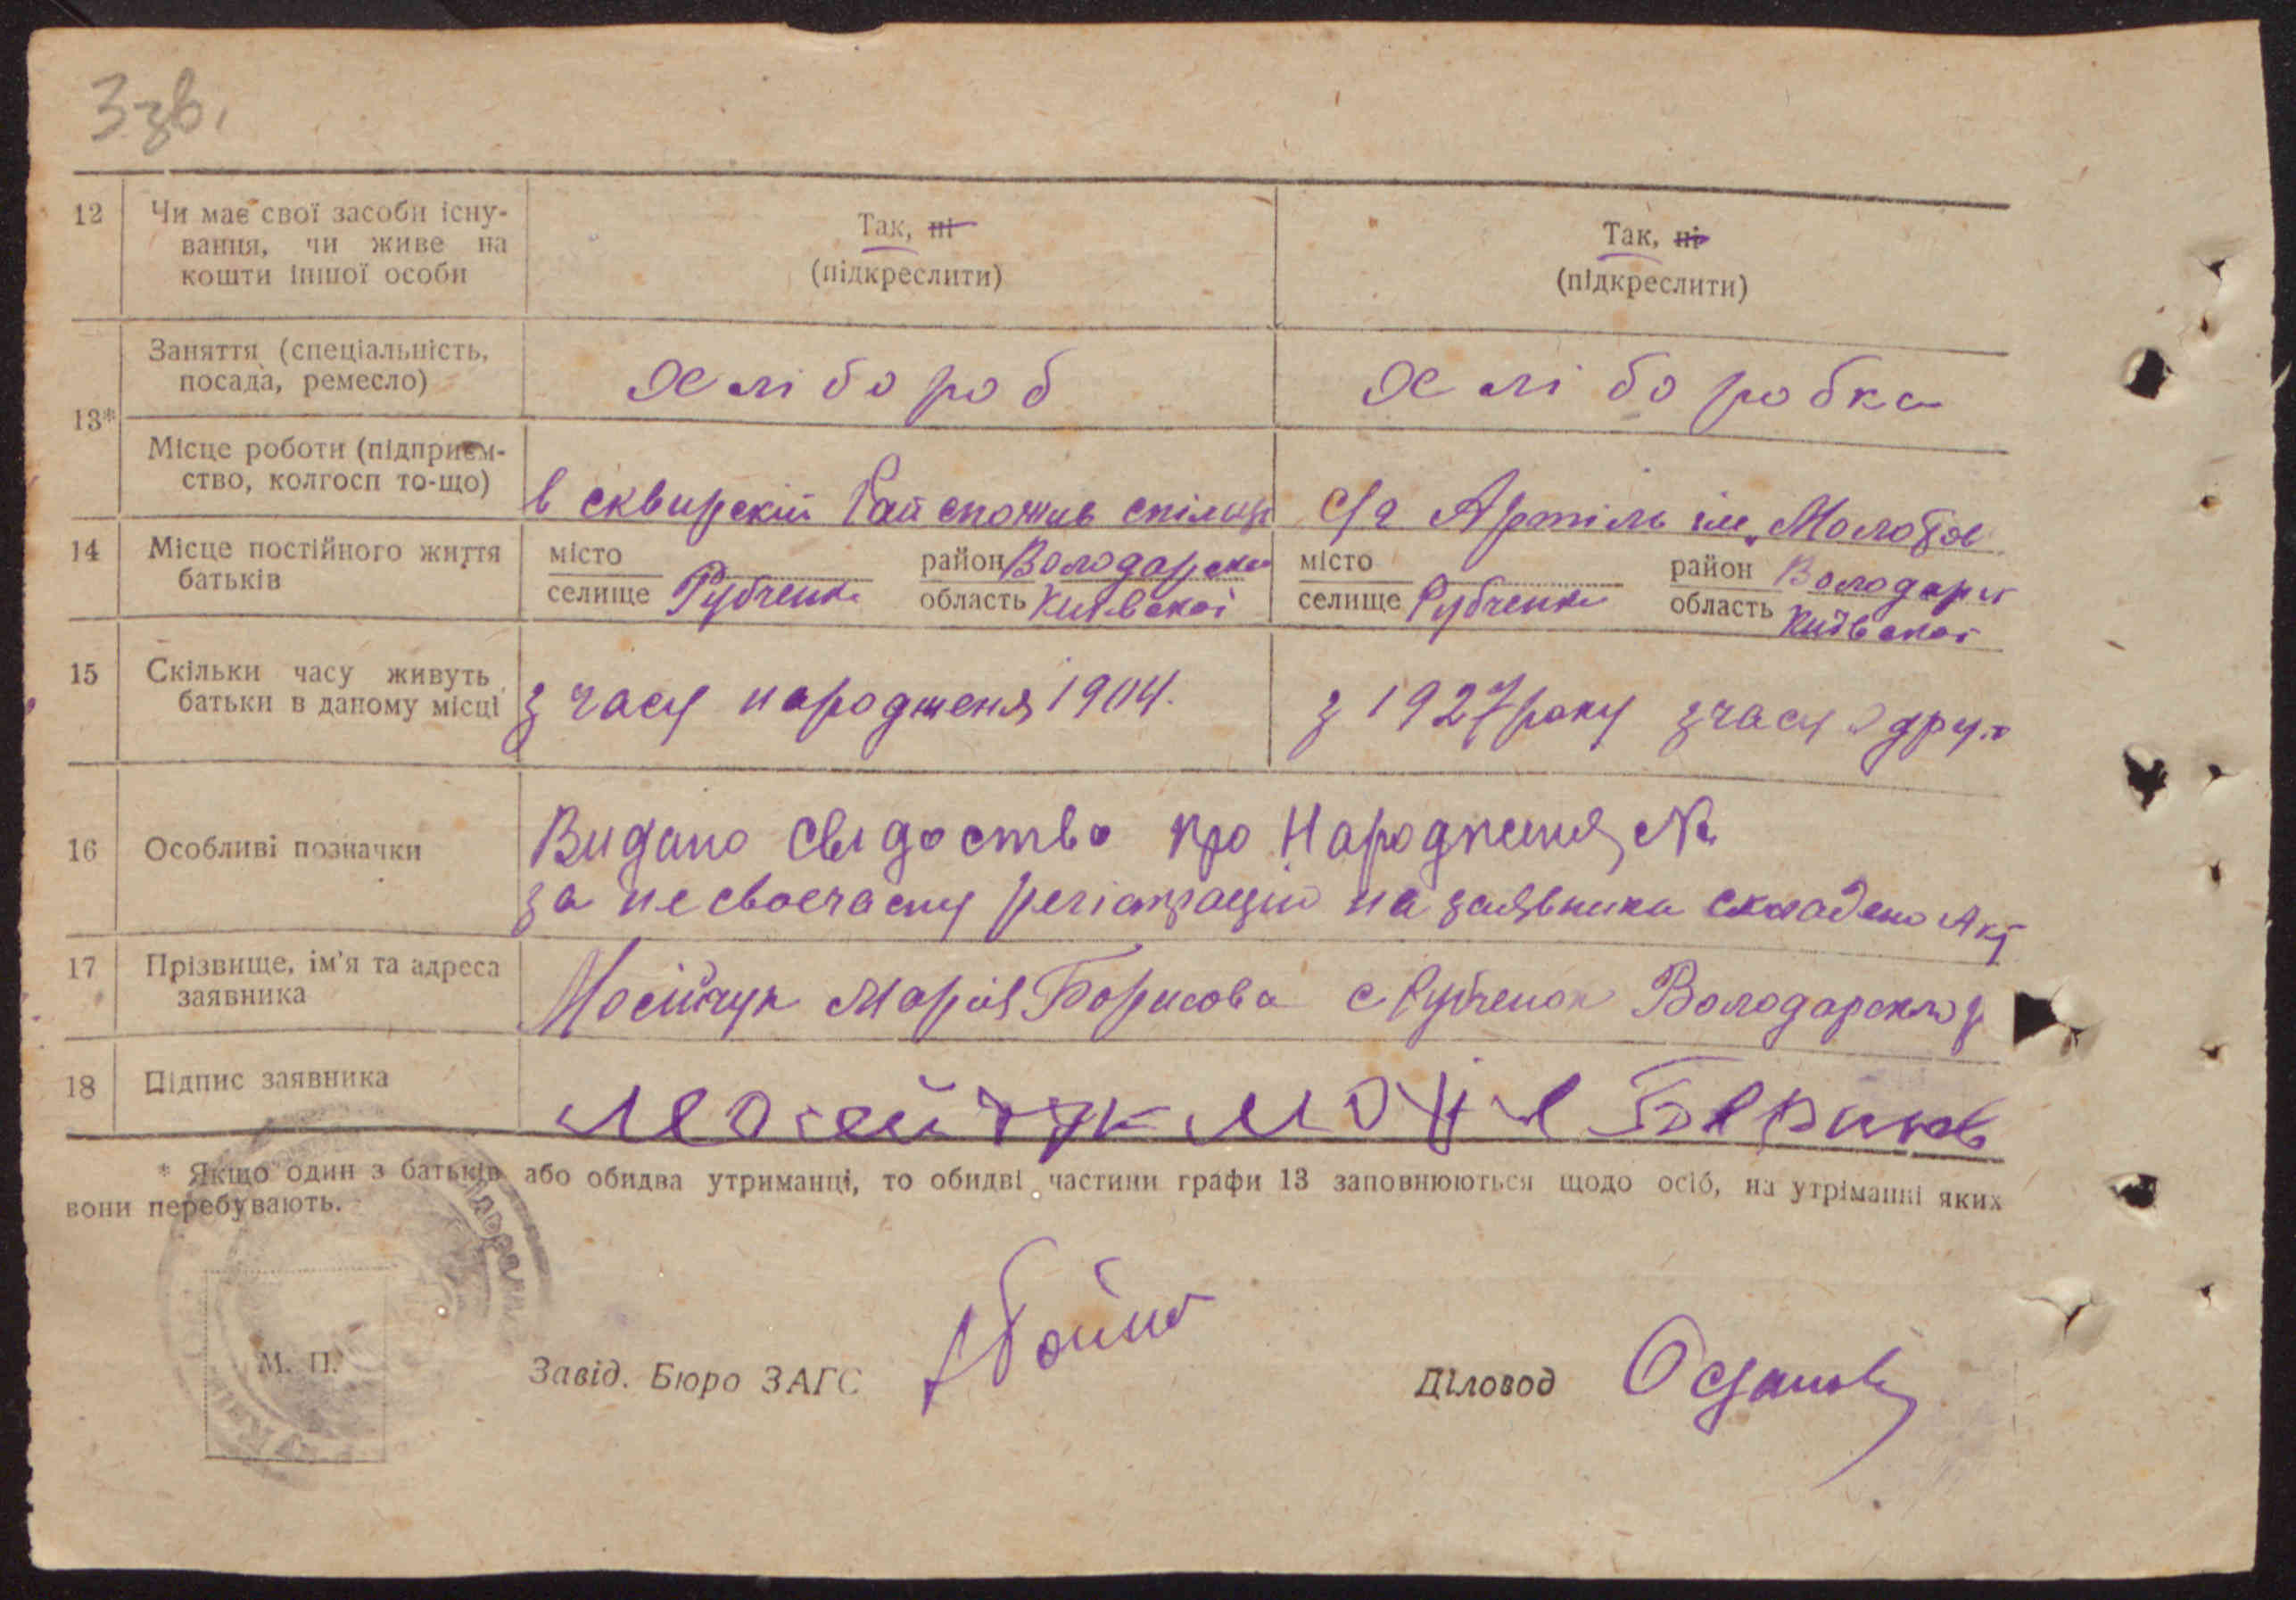 3 зв.
12 Чи має свої засоби існу-
вання, чи живе на
кошти іншої особи
Так, ні
(підкреслити)
Так, ні
(підкреслити)
13*
Заняття (спеціальність,
посада, ремесло)
Хлібороб
Хліборобка
Місце роботи (підприєм-
ство, колгосп то-що)
в сквирскій Райспожив спілці
С/г Артіль ім. Молотов
14 Місце постійного життя
батьків
місто
селище Рубченки
район Володарски
область Київской
місто
селище Рубченки
район Володарс
область Київской
15 Скільки часу живуть
батьки в даному місці
з часу народженя 1904.
з 1927 року з часу одруж
16 Особливі позначки
Видано свідоство про Народження №
за несвоечасну регістрацію на заявника складено Акт
17 Прізвище, ім'я та адреса
заявника
Мосійчук Марія Борисова с Рубченок Володарского р
18 Підпис заявника
* Якщо один з батьків або обидва утриманці, то обидві частини графи 13 заповнюються щодо осіб, на утріманні яких
вони перебувають.
М. П.
Завід. Бюро ЗАГС
Діловод